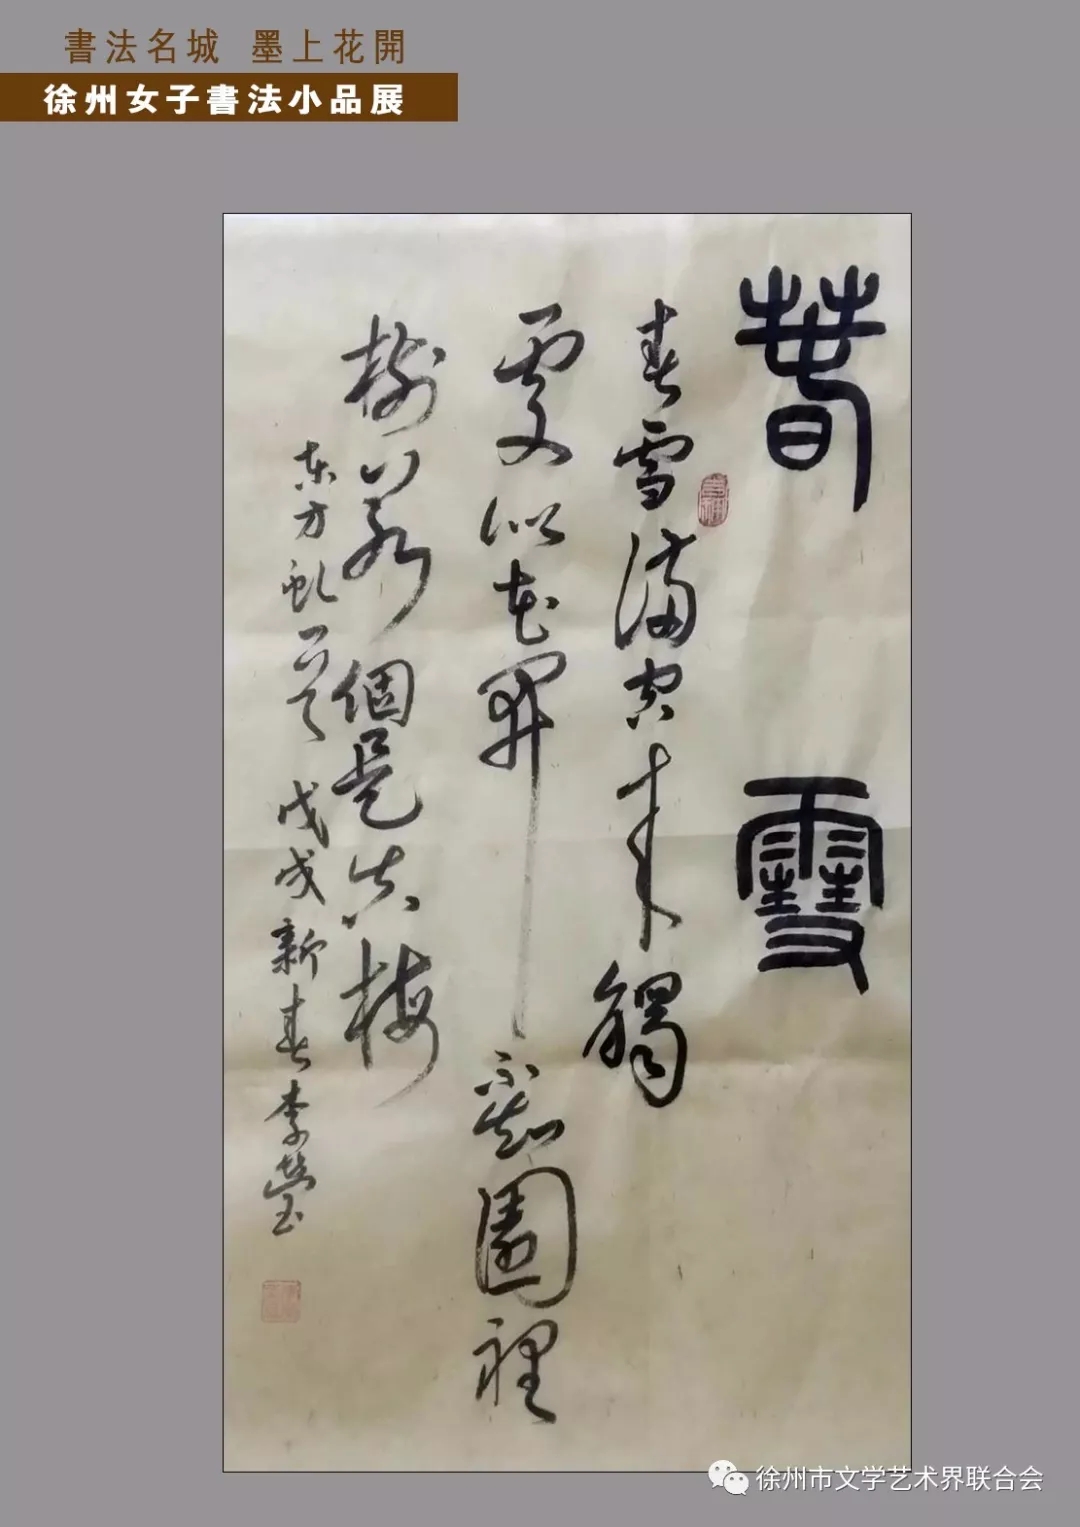 書法名城 墨上花開
徐州女子書法小品展
春雪
春雪滿空来觸
處似花開不知園裡
樹若個是真梅
东方虬 戊戌新春李瑩
徐州市文学艺术界联合会